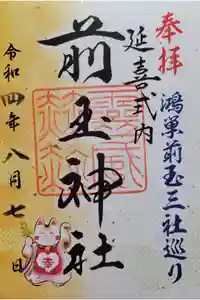 奉拝
鴻巣前玉三社巡り
延喜式内
前玉神社
令和四年八月七日